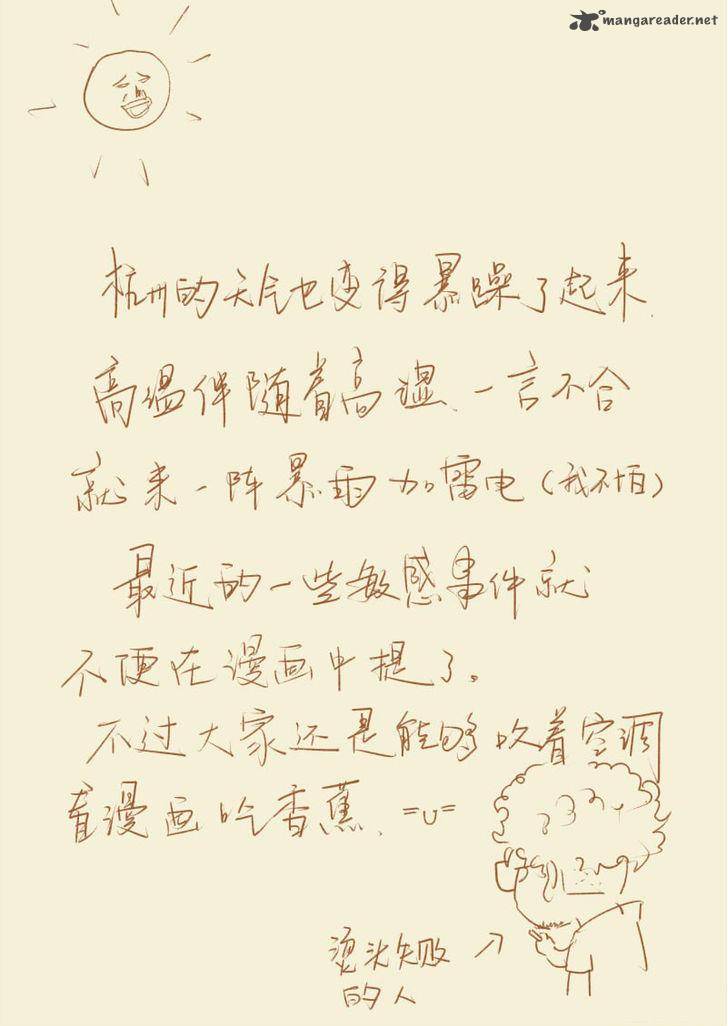 mangareader.net
杭州的天气也变得暴躁了起来.
高温伴随着高湿、一言不合
就来一阵暴雨加雷电(我不怕)
最近的一些敏感事件就
不便在漫画中提了。
不过大家还是能够吹着空调
看漫画吃香蕉、=u=
烫头失败
的人